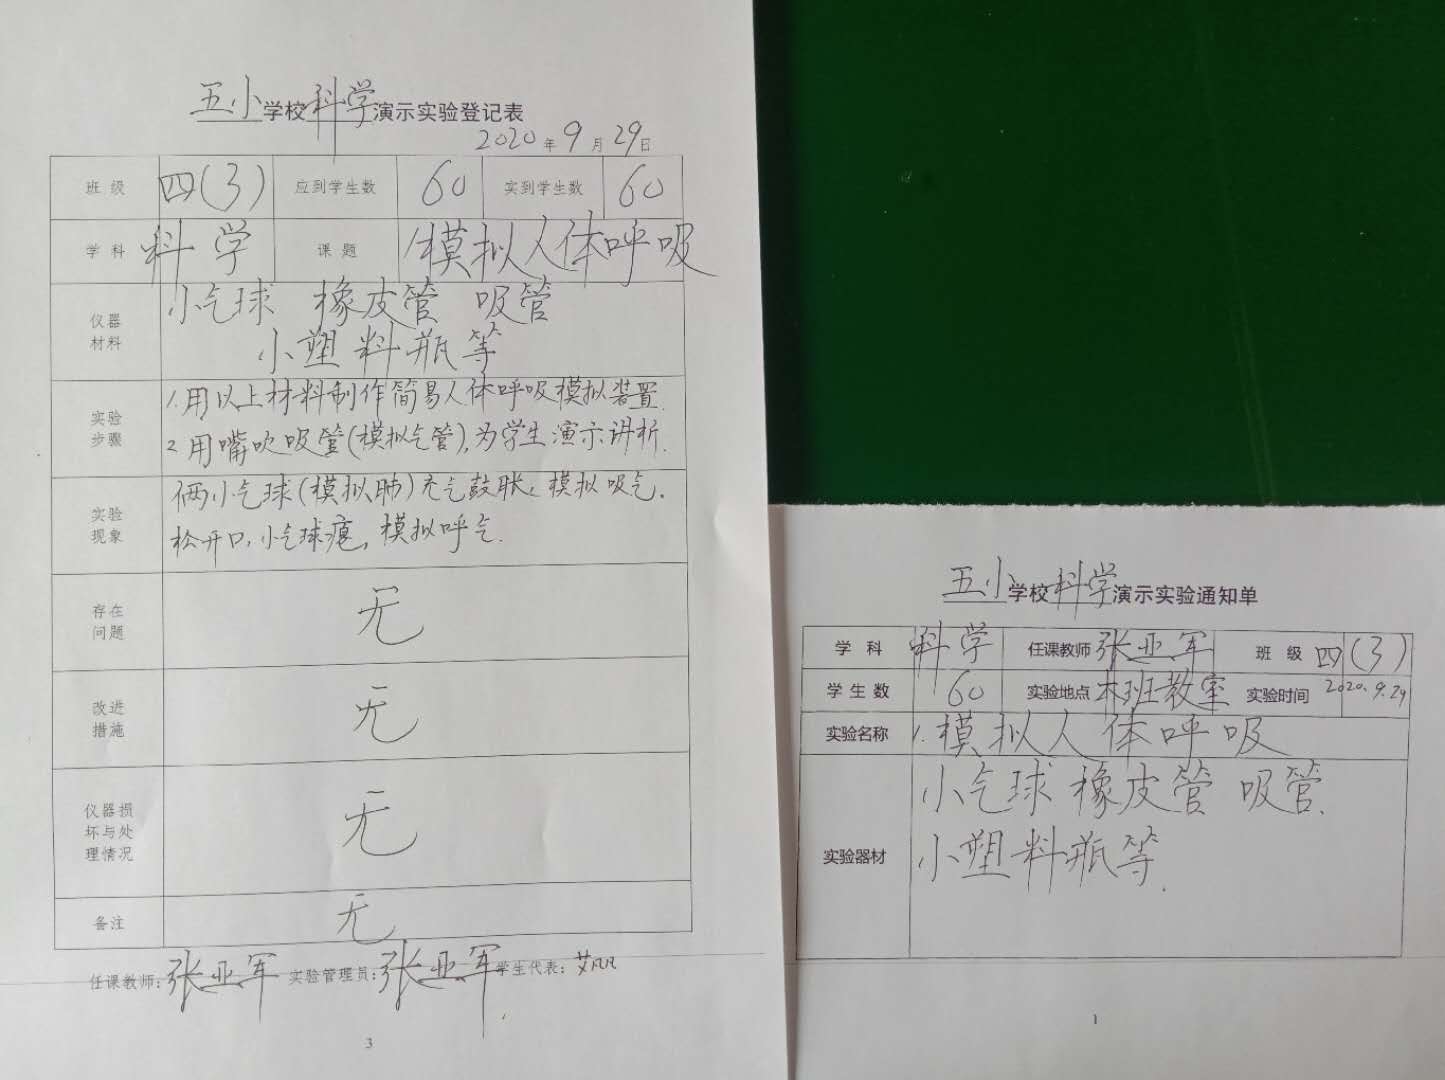 五小学校科学演示实验登记表
2020年9月29日
班 级 四(3) 应到学生数 60 实到学生数 60
学 科 科学 课 题 1.模拟人体呼吸
仪器
材料
小气球 橡皮管 吸管
小塑料瓶等
实验
步骤
1.用以上材料制作简易人体呼吸模拟装置.
2.用嘴吹吸管(模拟气管),为学生演示讲析.
实验
现象
俩小气球(模拟肺)充气鼓胀,模拟吸气.
松开口,小气球瘪,模拟呼气.
存在
问题
无
改进
措施
无
仪器损
坏与处
理情况
无
备注 无
任课教师:张亚军 实验管理员:张亚军 学生代表:艾凡凡
3
五小学校科学演示实验通知单
学 科 科学 任课教师 张亚军 班 级 四(3)
学生数 60 实验地点 本班教室 实验时间 2020.9.29
实验名称 1.模拟人体呼吸
实验器材
小气球 橡皮管 吸管.
小塑料瓶等.
1